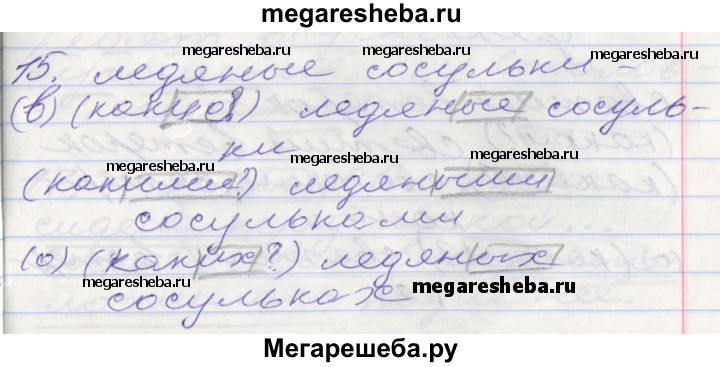 megaresheba.ru
megaresheba.ru megaresheba.ru
15. ледяные сосульки –
(в) (какие?) ледяные сосуль-
megaresheba.ru megaresheba.ru
ки
megaresheba.ru
(какими?) ледяными
сосульками
megaresheba.ru
(о) (каких?) ледяных
сосульках
megaresheba.ru megaresheba.ru
Мегарешеба.ру